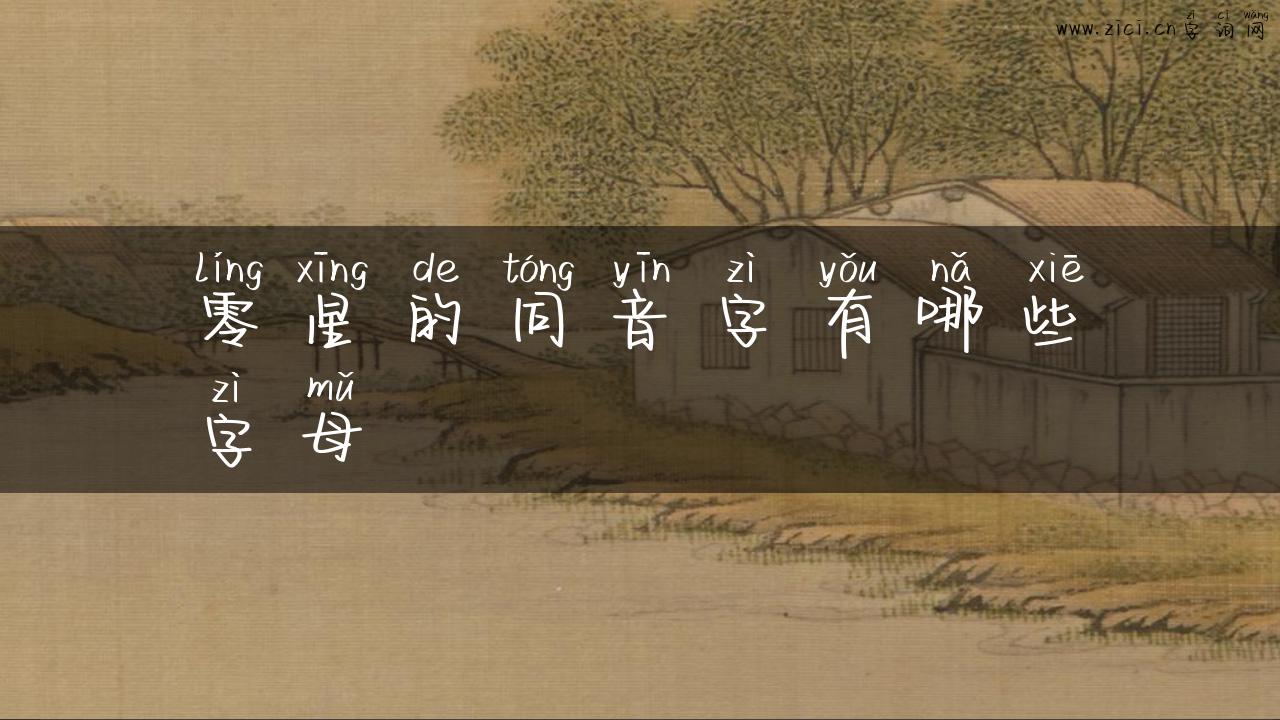 zì cí wǎng
www.zici.cn字词网
líng xīng de tóng yīn zì yǒu nǎ xiē
零星的同音字有哪些
zì mǔ
字母